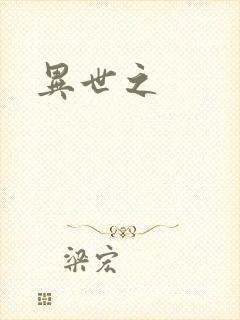 異世之
梁宏